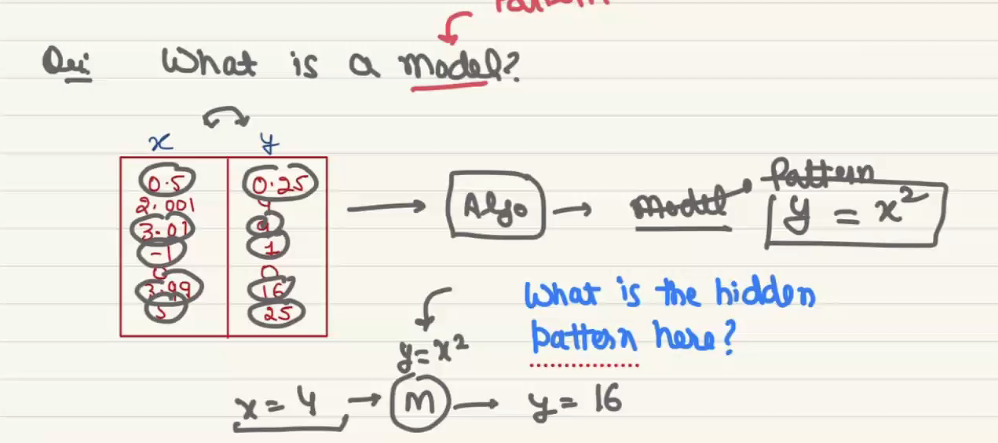 Pattern
Que: What is a model?
x y
0.5 0.25
2.001 4
3.01 9
-1 1
0 0
3.99 16
5 25
Algo
Model
Pattern
y = x²
What is the hidden
pattern here?
y = x²
x = 4 → M → y = 16